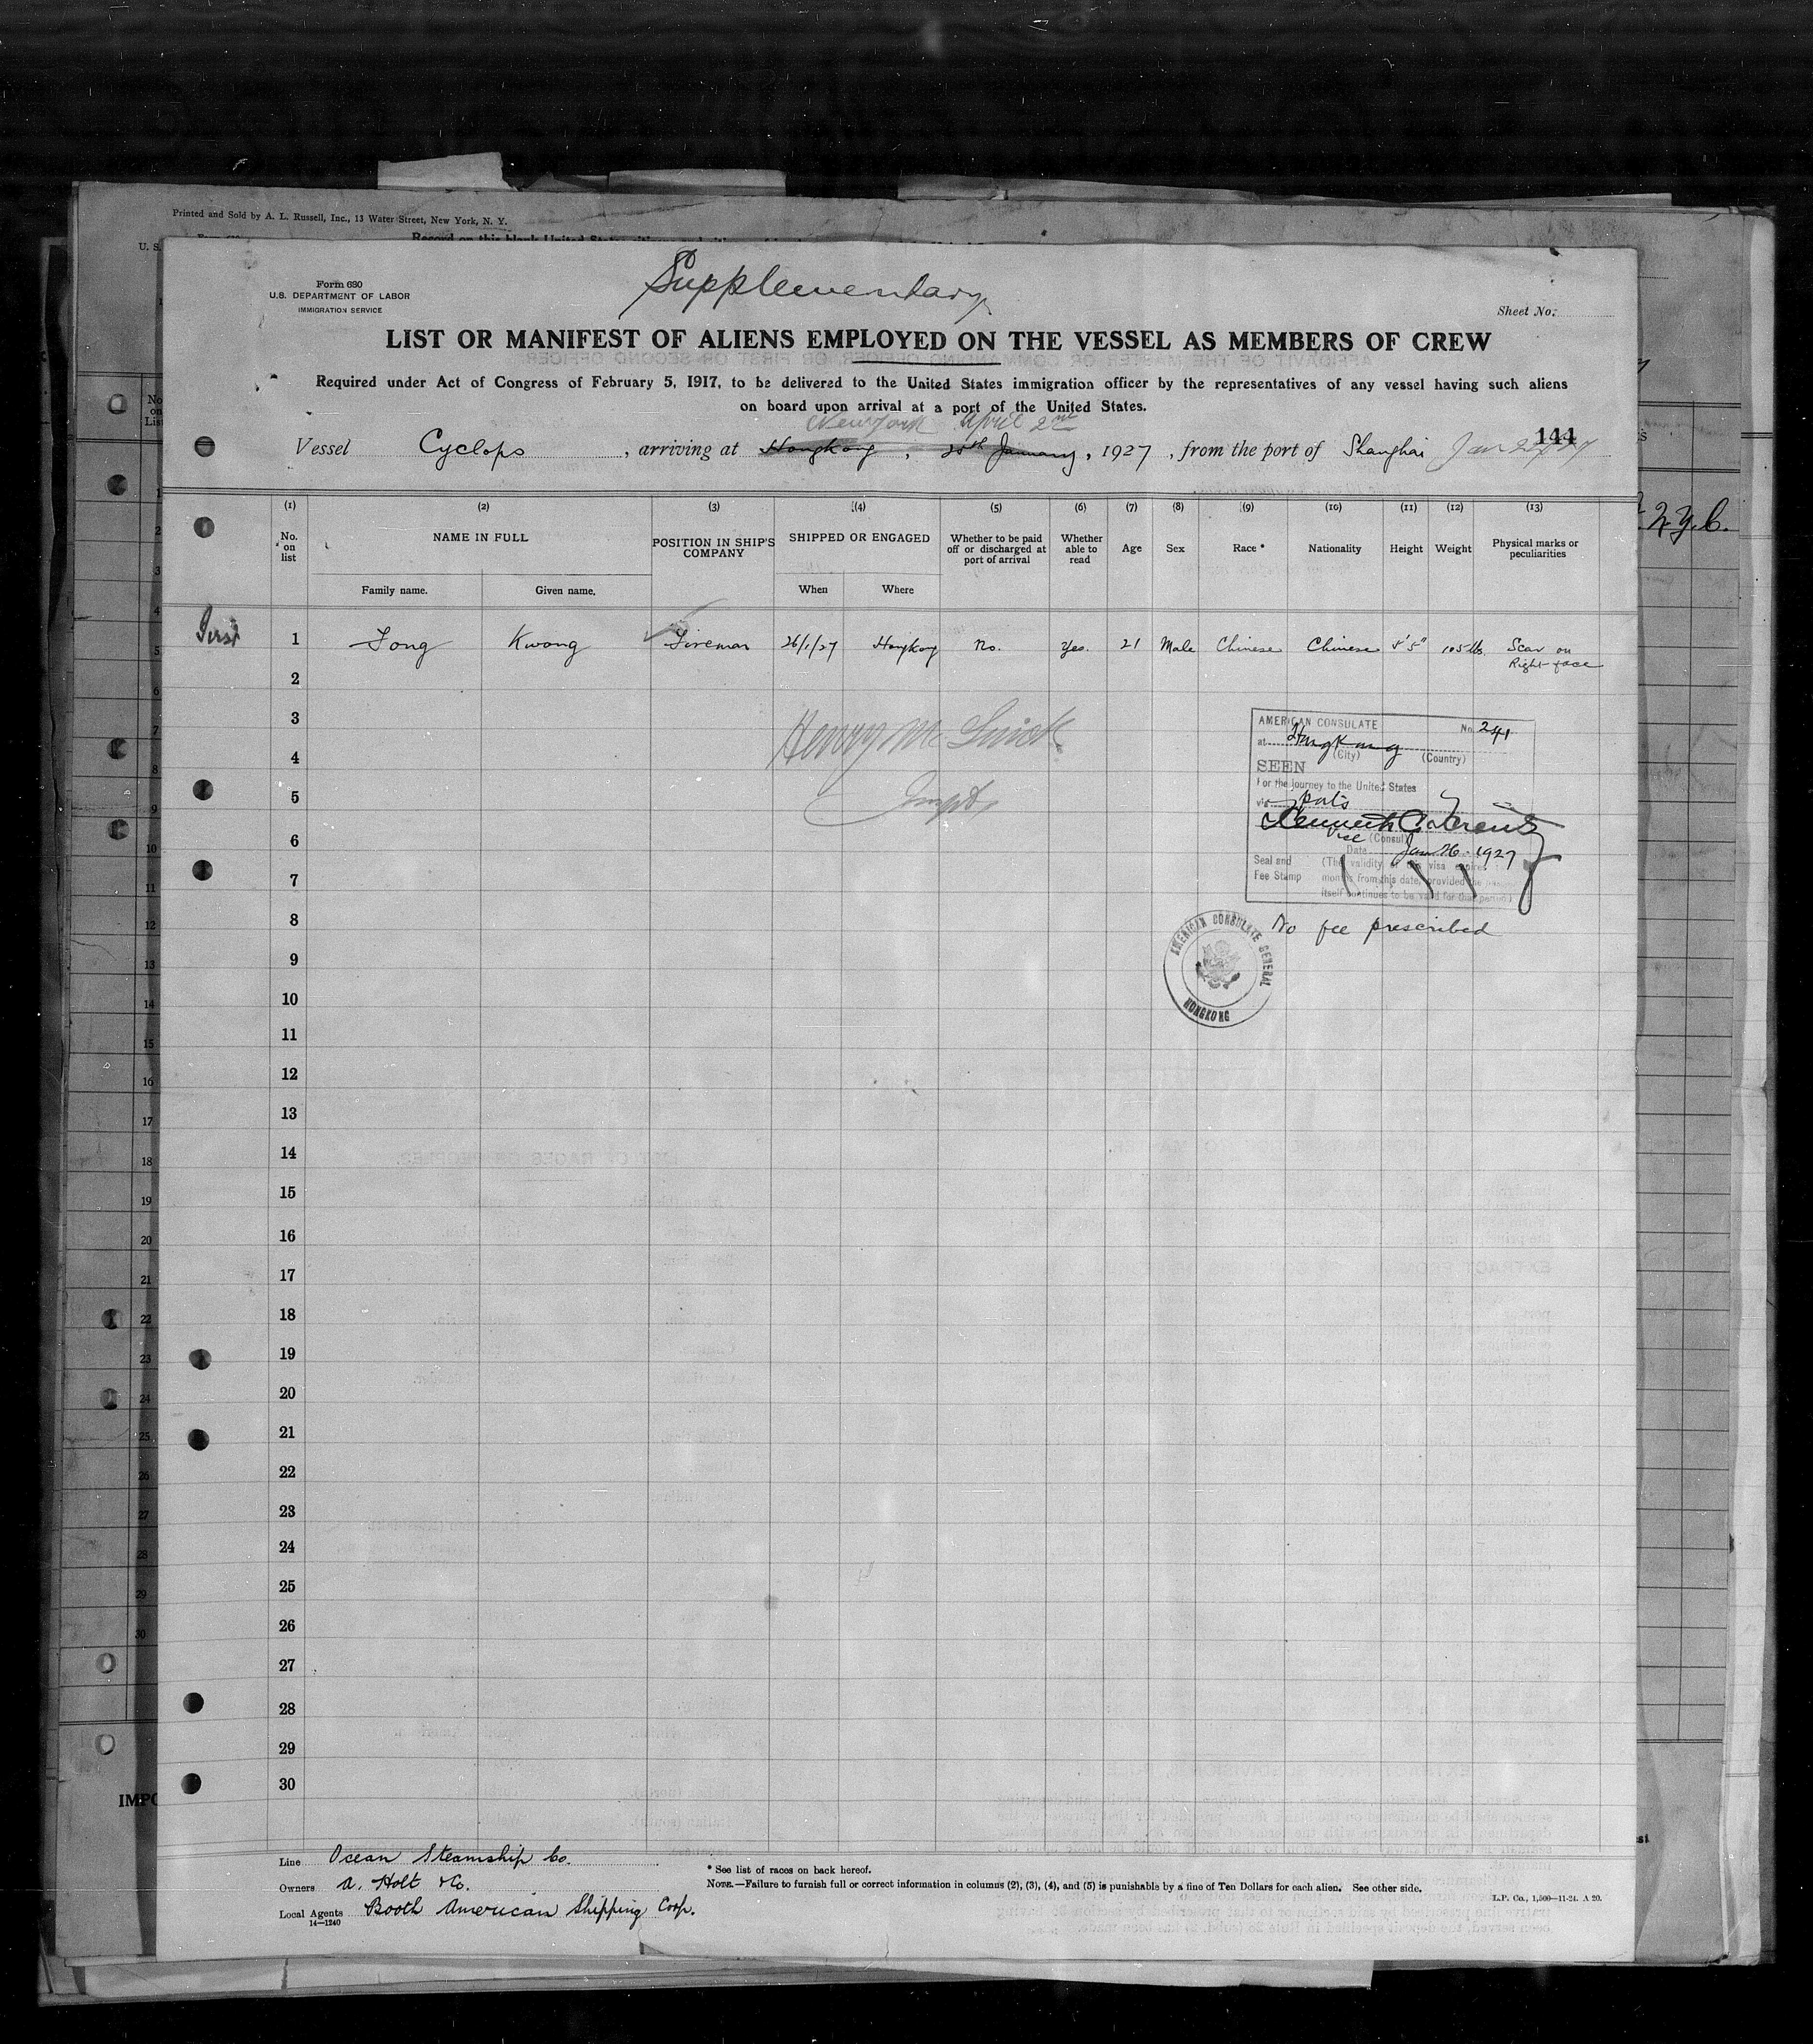 Printed and Sold by A. L. Russell, Inc., 13 Water Street, New York, N. Y.
U. S.
Supplementary
Form 680
U.S. DEPARTMENT OF LABOR
IMMIGRATION SERVICE
Sheet No.
LIST OR MANIFEST OF ALIENS EMPLOYED ON THE VESSEL AS MEMBERS OF CREW
Required under Act of Congress of February 5, 1917, to be delivered to the United States immigration officer by the representatives of any vessel having such aliens
on board upon arrival at a port of the United States.
New York April 2nd
144
Vessel Cyclops, arriving at Hongkong, 25th January, 1927, from the port of Shanghai Jan
(1) (2) (3) (4) (5) (6) (7) (8) (9) (10) (11) (12) (13)
No. on list NAME IN FULL POSITION IN SHIP'S COMPANY SHIPPED OR ENGAGED Whether to be paid off or discharged at port of arrival Whether able to read Age Sex Race * Nationality Height Weight Physical marks or peculiarities
Family name. Given name. When Where
First 1 Fong Kwong Fireman 26/1/27 Hongkong No. Yes. 21 Male Chinese Chinese 5' 5" 105 lbs. Scar on
Right face
2
3
4
5
6
7
8
9
10
11
12
13
14
15
16
17
18
19
20
21
22
23
24
25
26
27
28
29
30
Henry
Inspt.
AMERICAN CONSULATE No. 241
at Hongkong
(City) (Country)
SEEN
For the journey to the United States
via ports
Kenneth C.
Vice (Consul)
Date Jan 26. 1927
Seal and
Fee Stamp
(The validity of this visa expires
months from this date, provided the
itself continues to be valid for that period)
No fee prescribed
AMERICAN CONSULATE GENERAL
HONGKONG
Line Ocean Steamship Co.
Owners A. Holt & Co.
Local Agents Booth American Shipping Corp.
14—1240
* See list of races on back hereof.
NOTE.—Failure to furnish full or correct information in columns (2), (3), (4), and (5) is punishable by a fine of Ten Dollars for each alien. See other side.
L.P. Co., 1,500—11-24. A 20.